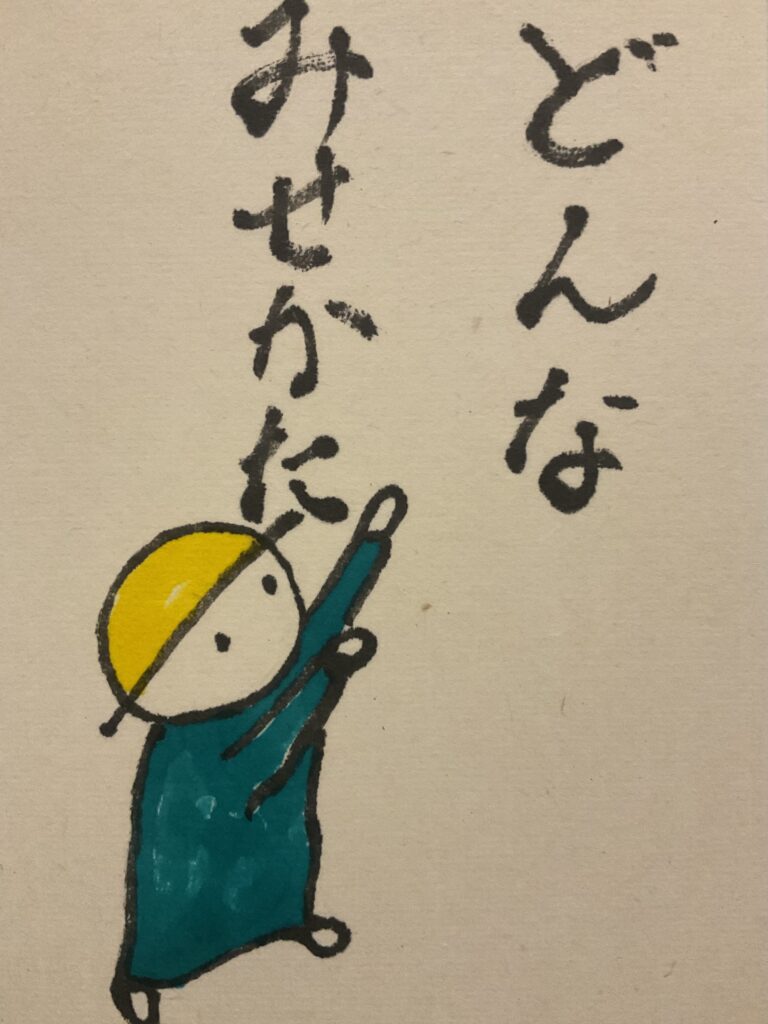 どんな
みせかた